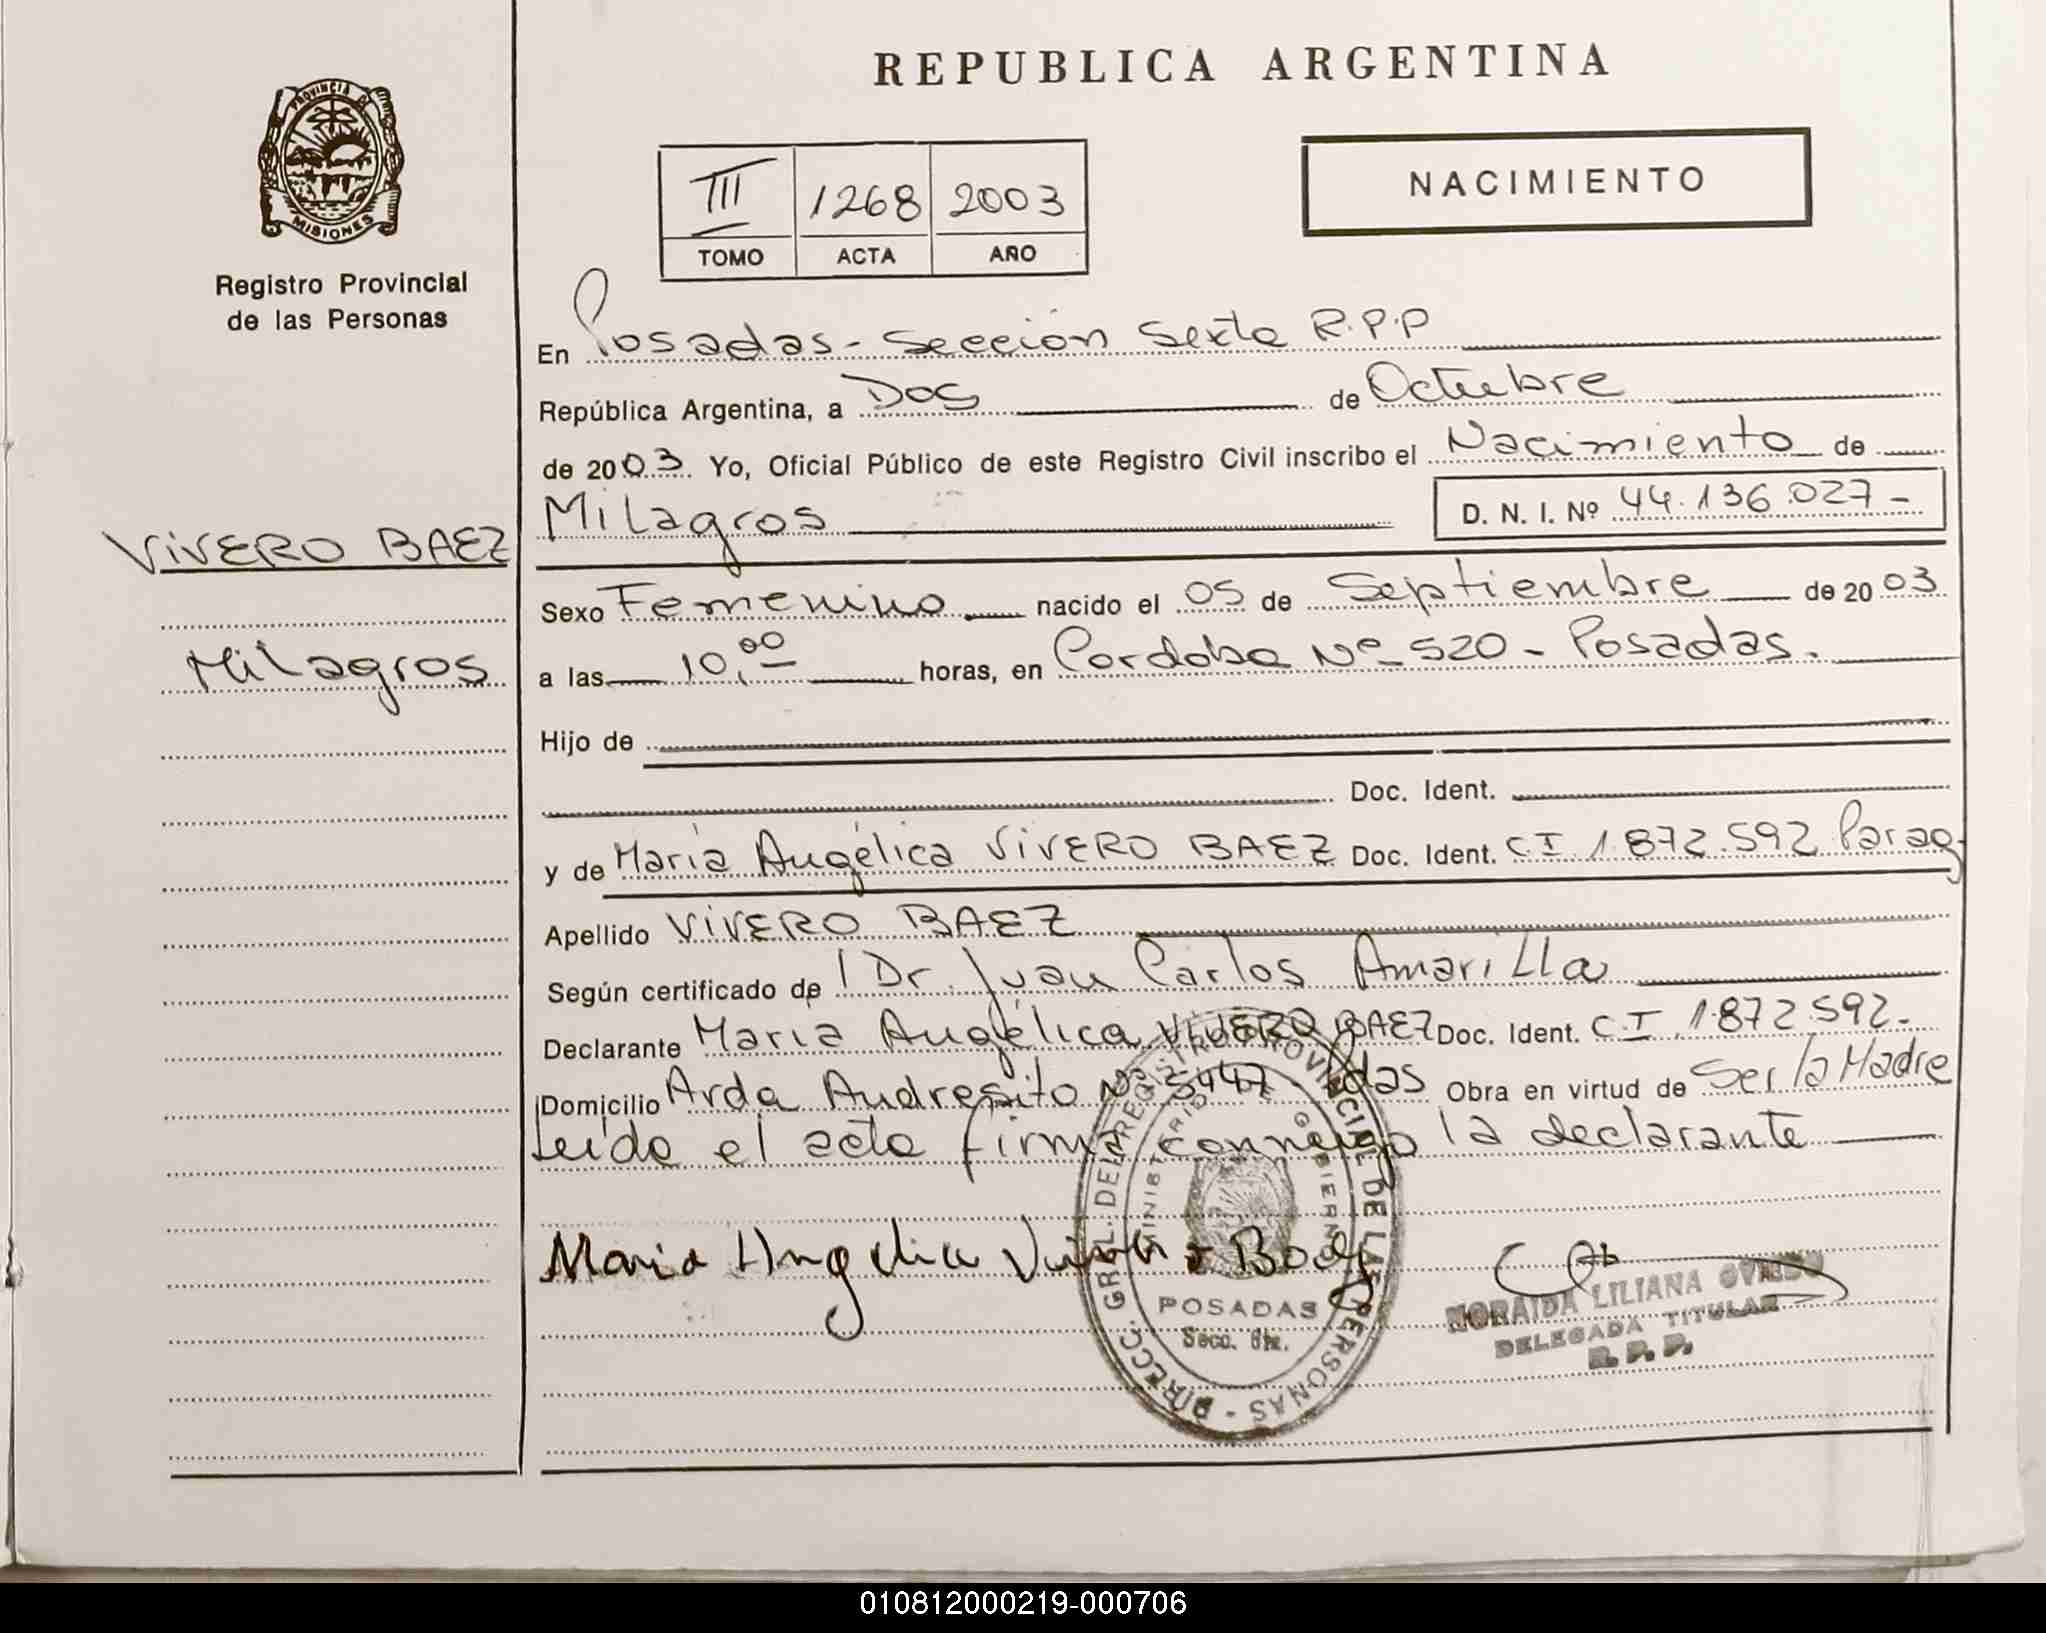 REPUBLICA ARGENTINA
PROVINCIA DE
MISIONES
Registro Provincial
de las Personas
III 1268 2003
TOMO ACTA AÑO
NACIMIENTO
En Posadas - Sección Sexta R.P.P
República Argentina, a Dos de Octubre
de 2003. Yo, Oficial Público de este Registro Civil inscribo el Nacimiento de
Milagros D. N. I. Nº 44.136.027 -
VIVERO BAEZ
Milagros
Sexo Femenino nacido el 05 de Septiembre de 2003
a las 10,00 horas, en Cordoba Nº 520 - Posadas.
Hijo de
Doc. Ident.
y de María Angélica VIVERO BAEZ Doc. Ident. C I 1.872.592 Parag
Apellido VIVERO BAEZ
Según certificado de Dr. Juan Carlos Amarilla
Declarante María Angélica VIVERO BAEZ Doc. Ident. C.I. 1.872.592.-
Domicilio Avda Andresito Nº 5447 - Pdas Obra en virtud de Ser la Madre
Leida el acta firma conmigo la declarante
Maria Angelica Vivero Baez
DIRECC. GRAL. DEL REGISTRO PROVINCIAL DE LAS PERSONAS -
MINISTERIO GOBIERNO
POSADAS
Secc. 6ta.
NORAIDA LILIANA OVIEDO
DELEGADA TITULAR
R. P. P.
010812000219-000706